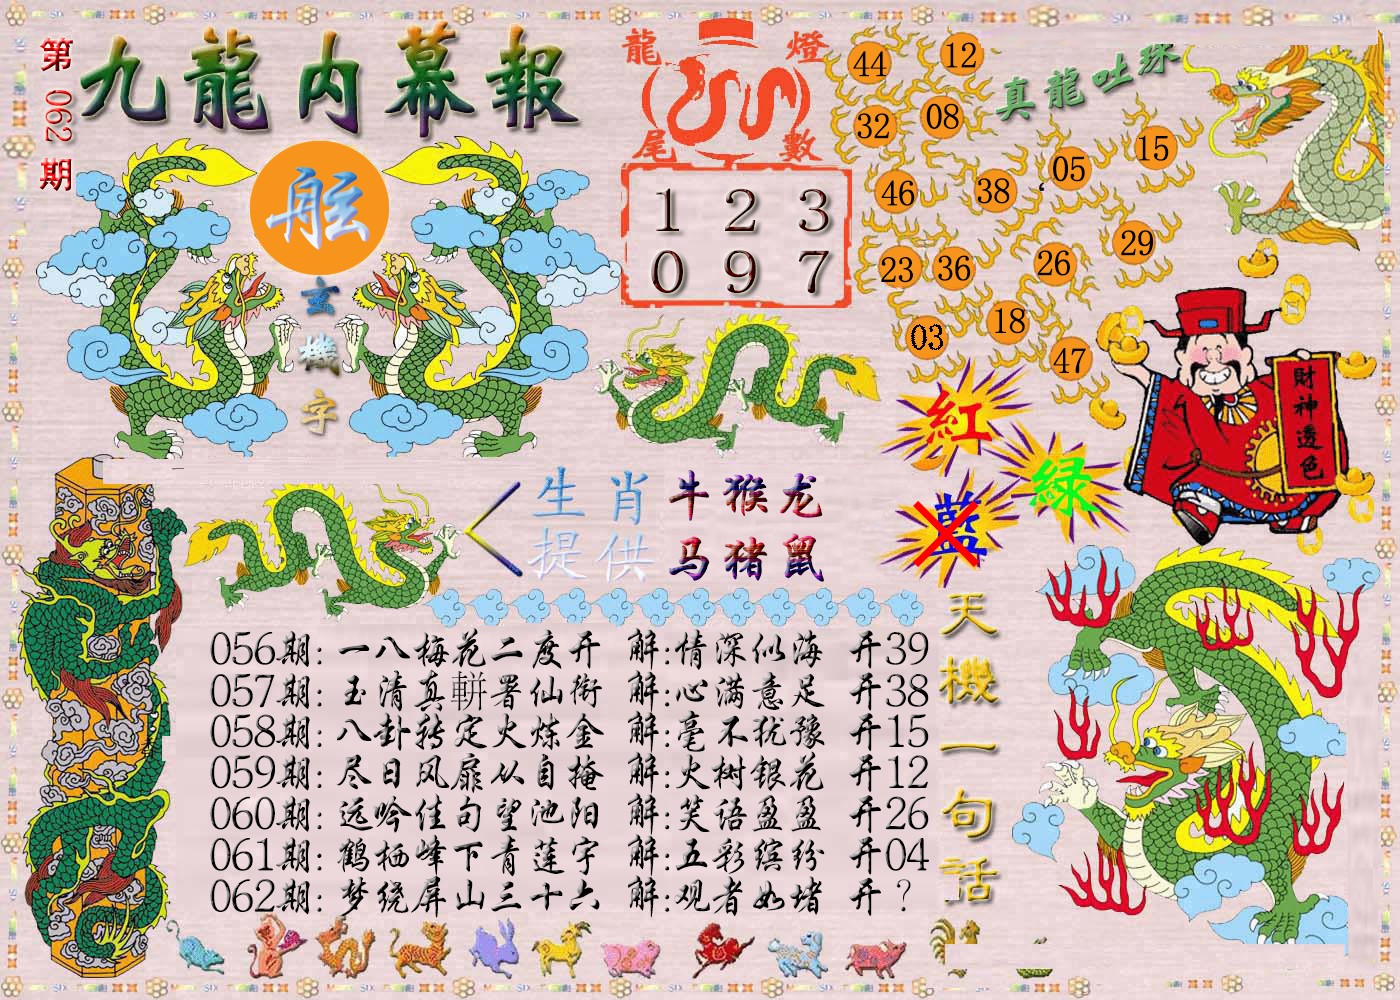 第062期
九龍内幕報
舷
玄機字
龍燈尾數
1 2 3
0 9 7
真龍吐珠
44 12
32 08
46 38 05 15
23 36 26 29
03 18 47
紅
绿
藍
財神透色
生肖提供
牛猴龙
马猪鼠
056期: 一八梅花二度开 解:情深似海 开39
057期: 玉清真軿署仙衔 解:心满意足 开38
058期: 八卦转定火炼金 解:毫不犹豫 开15
059期: 尽日风扉从自掩 解:火树银花 开12
060期: 远吟佳句望池阳 解:笑语盈盈 开26
061期: 鹤栖峰下青莲宇 解:五彩缤纷 开04
062期: 梦绕屏山三十六 解:观者如堵 开?
天機一句話